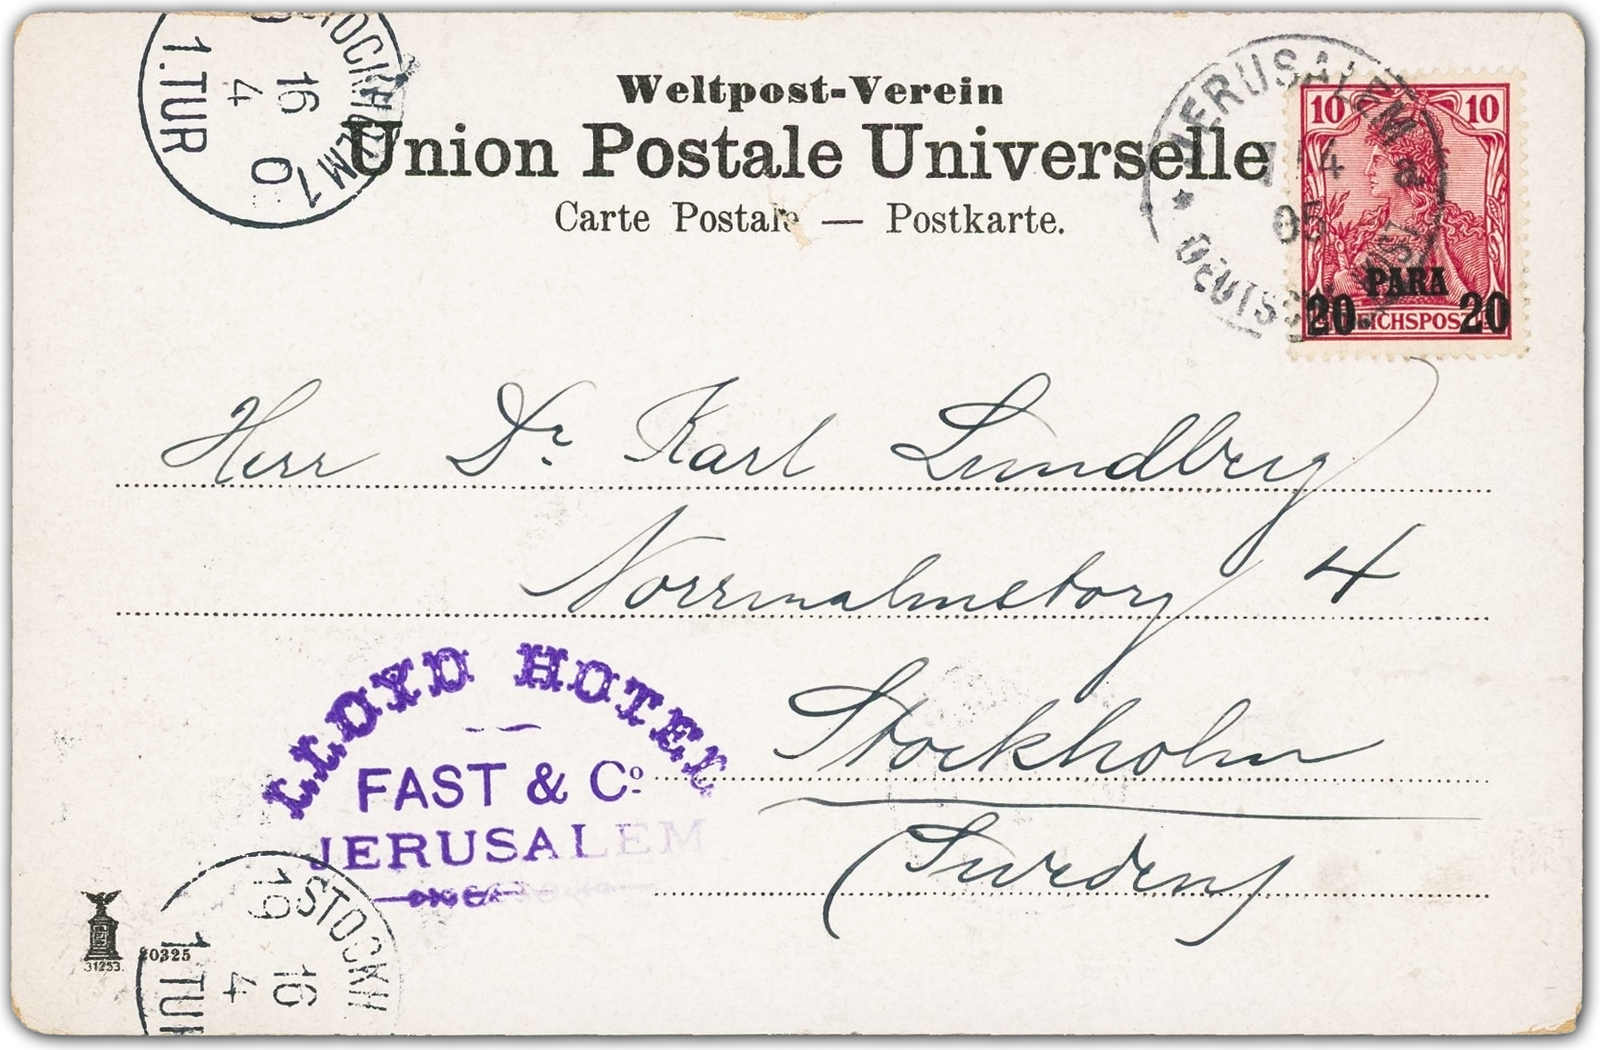 STOCKHOLM 1
16 0
4
1.TUR
Weltpost-Verein
Union Postale Universelle
Carte Postale — Postkarte.
JERUSALEM
4
a
05
DEUTSCHE POST
10 10
PARA
20 20
REICHSPOST
Herr Dr. Karl Lundberg
Norrmalmstorg 4
Stockholm
(Sweden)
LLOYD HOTEL
FAST & Co.
JERUSALEM
STOCKH
19 16
4
1 TUR
20325
31253.